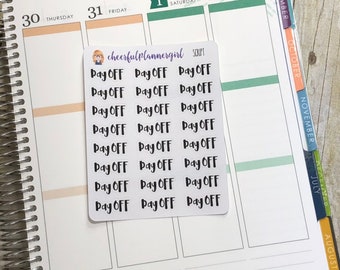 30 THURSDAY 31 FRIDAY 1 SATURDAY
cheerfulplannergirl SCRIPT
Day OFF Day OFF Day OFF
Day OFF Day OFF Day OFF
Day OFF Day OFF Day OFF
Day OFF Day OFF Day OFF
Day OFF Day OFF Day OFF
Day OFF Day OFF Day OFF
Day OFF Day OFF Day OFF
Day OFF Day OFF Day OFF
NOVEMBER
JULY